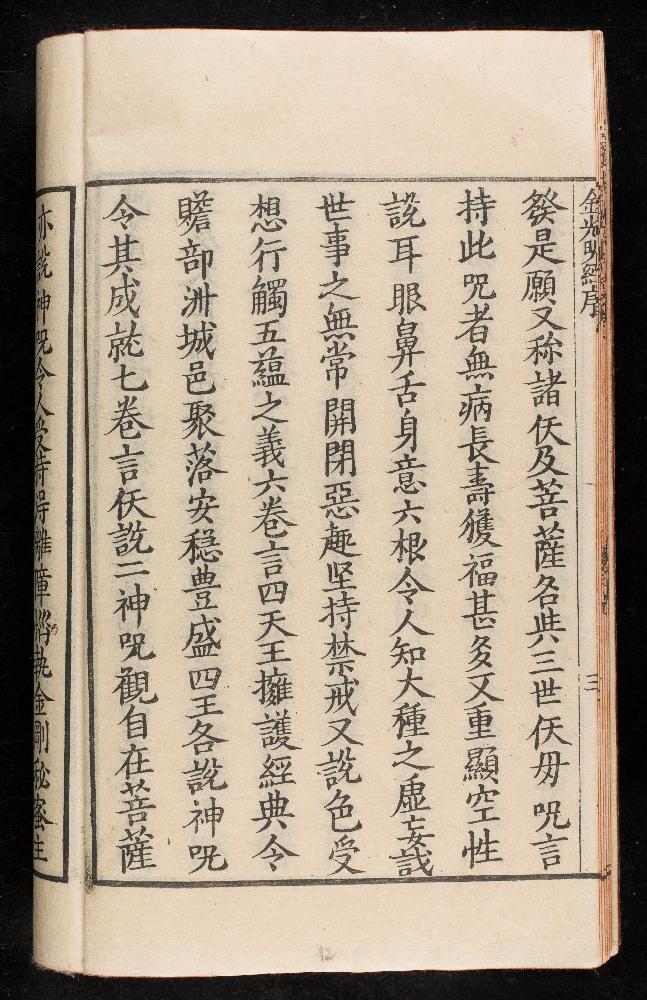 金光明經序
三
發是願又称諸仸及菩薩名共三世仸毋呪言
持此呪者無病長壽獲福甚多又重顯空性
說耳眼鼻舌身意六根令人知大種之虛妄誡
世事之無常開閉惡趣坚持禁戒又說色受
想行觸五蘊之義六卷言四天王擁護經典令
贍部洲城邑聚落安穏豊盛四王各說神呪
令其成就七卷言仸說二神呪觀自在菩薩
亦說神呪令人受持得離障 執金剛秘密主